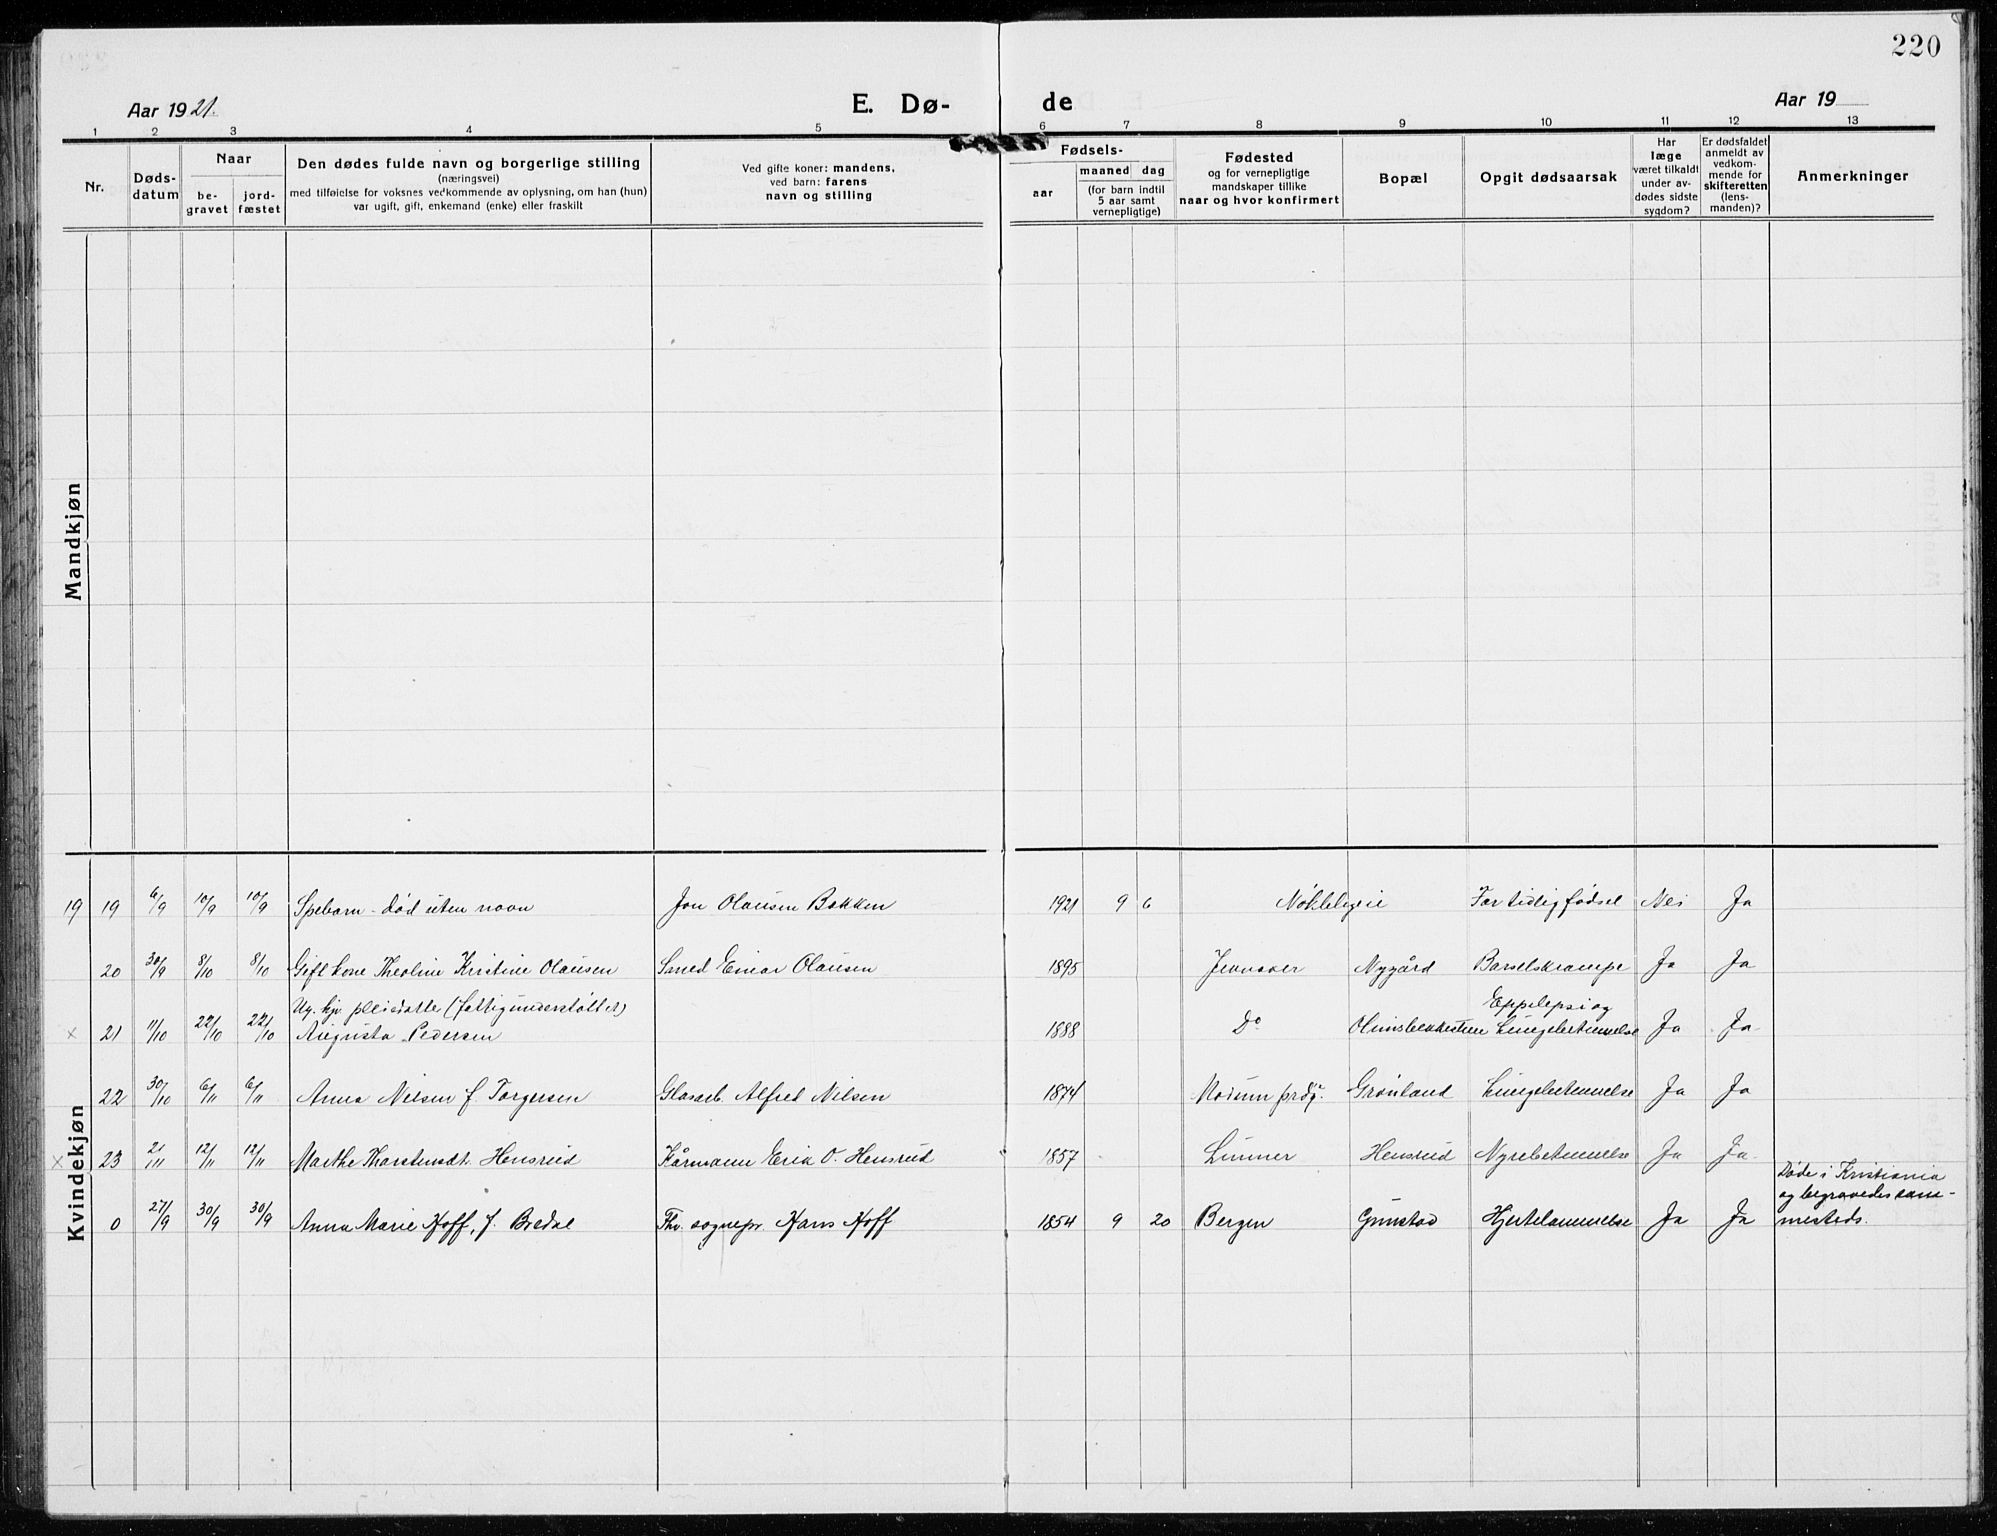 220
Aar 1921.
E. Dø-
de
Aar 19
1 2 3 4 5 6 7 8 9 10 11 12 13
Nr.
Døds-
datum
Naar
be-
gravet
jord-
fæstet
Den dødes fulde navn og borgerlige stilling
(næringsvei)
med tilføielse for voksnes vedkommende av oplysning, om han (hun)
var ugift, gift, enkemand (enke) eller fraskilt
Ved gifte koner: mandens,
ved barn: farens
navn og stilling
Fødsels-
aar
maaned dag
(for barn indtil
5 aar samt
vernepligtige)
Fødested
og for vernepligtige
mandskaper tillike
naar og hvor konfirmert
Bopæl
Opgit dødsaarsak
Har
læge
været tilkaldt
under av-
dødes sidste
sygdom?
Er dødsfaldet
anmeldt av
vedkom-
mende for
skifteretten
(lens-
manden)?
Anmerkninger
Mandkjøn
Kvindekjøn
19 19 6/9 10/9 10/9 Spebarn - død uten navn Jon Olausen Bakken 1921 9 6 Nøkleleie For tidlig fødsel Nei Ja
20 30/9 8/10 8/10 Gift kone Theoline Kristine Olausen Smed Einar Olausen 1895 Jevnaker Nygård Barselskrampe Ja Ja
Ug. hj. pleiedatte (fattigunderstøttet) Eppelepsi og
x 21 11/10 22/10 22/10 Augusta Pedersen 1888 Do Olimsbekkestuen Lungebetennelse Ja Ja
22 30/10 6/11 6/11 Anna Nilsen f. Torgersen Glasarb. Alfred Nilsen 1874 Modum prdg. Grønland Lungebetennelse Ja Ja
x 23 2/11 12/11 12/11 Marthe Thorstensdt. Hensrud Kårmann Erik O. Hensrud 1857 Lunner Hensrud Nyrebetennelse Ja Ja
Døde i Kristiania
og begravedes sam-
0 27/9 30/9 30/9 Anna Marie Hoff, f. Bredal Fhv. sognepr. Hans Hoff 1854 9 20 Bergen Grinstad Hjertelammelse Ja Ja mesteds.